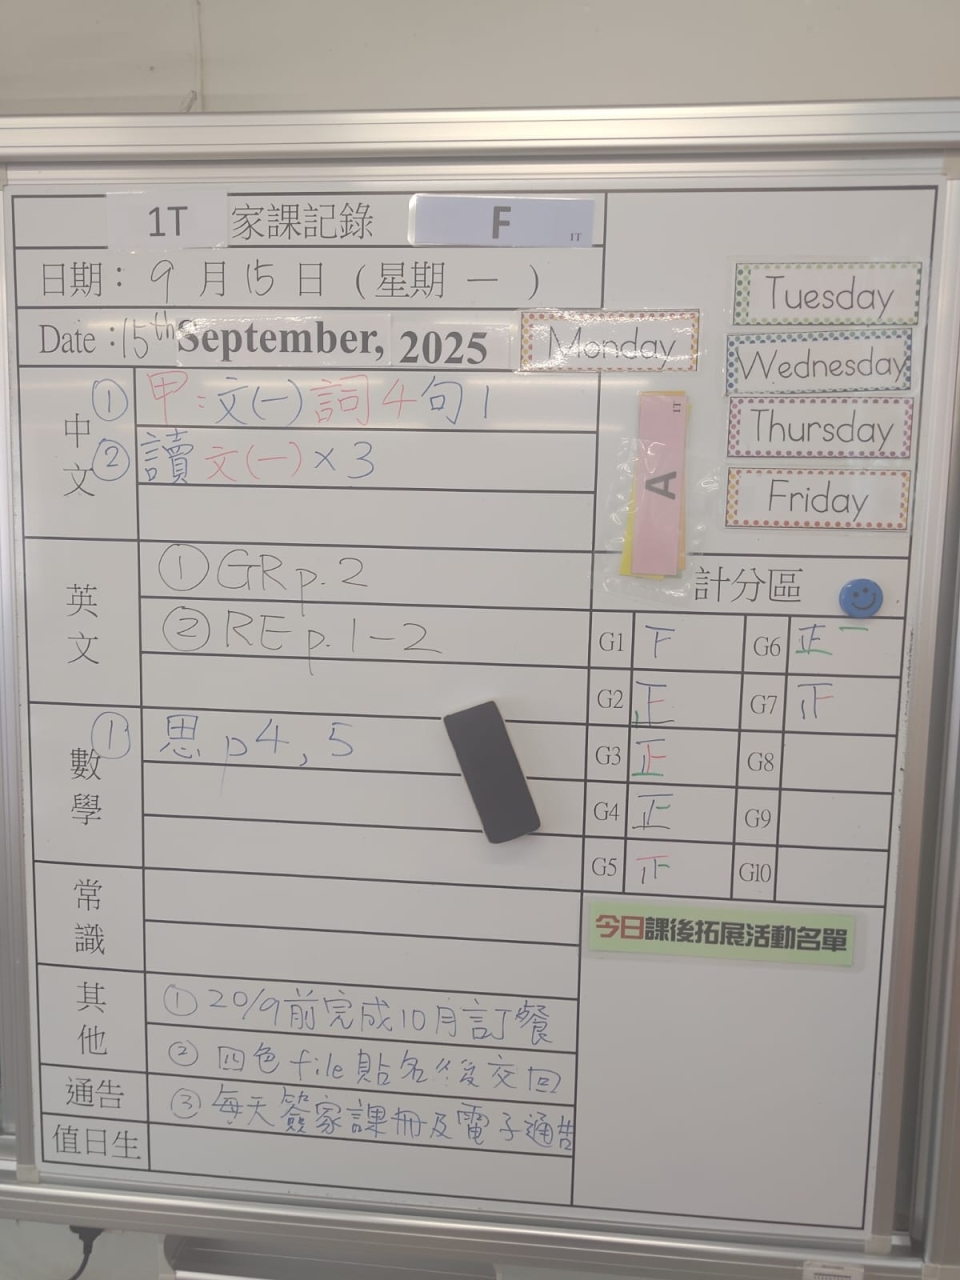 1T 家課記錄 F 1T
日期：9月15日（星期一）
Date：15th September, 2025 Monday
Tuesday
Wednesday
Thursday
Friday
A 1T
中文
① 甲：文(一) 詞4句1
② 讀文(一)×3
英文
① GR p.2
② RE p.1-2
數學
① 思 p4, 5
常識
其他
① 20/9前完成10月訂餐
② 四色file貼名後交回
通告
③ 每天簽家課冊及電子通告
值日生
計分區
G1 下 G6 正一
G2 正 G7 正
G3 正 G8
G4 正 G9
G5 正 G10
今日課後拓展活動名單